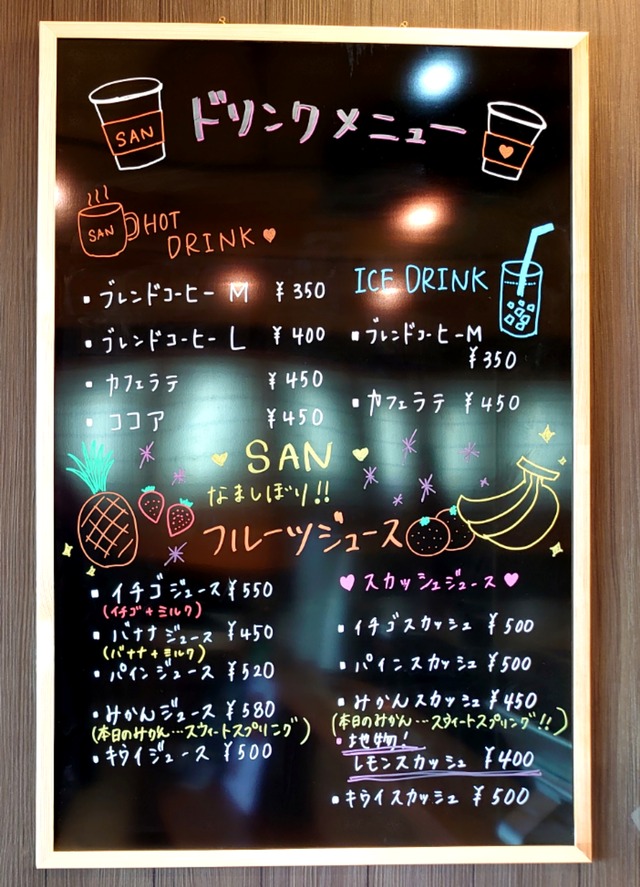 SAN
ドリンクメニュー
SAN
HOT
DRINK
・ブレンドコーヒー M ¥350
・ブレンドコーヒー L ¥400
・カフェラテ ¥450
・ココア ¥450
ICE DRINK
・ブレンドコーヒーM
¥350
・カフェラテ ¥450
SAN
なましぼり!!
フルーツジュース
・イチゴジュース ¥550
(イチゴ+ミルク)
・バナナジュース ¥450
(バナナ+ミルク)
・パインジュース ¥520
・みかんジュース ¥580
(本日のみかん…スウィートスプリング)
・キウイジュース ¥500
♥スカッシュジュース♥
・イチゴスカッシュ ¥500
・パインスカッシュ ¥500
・みかんスカッシュ ¥450
(本日のみかん…スウィートスプリング!!)
・地物!
レモンスカッシュ ¥400
・キウイスカッシュ ¥500